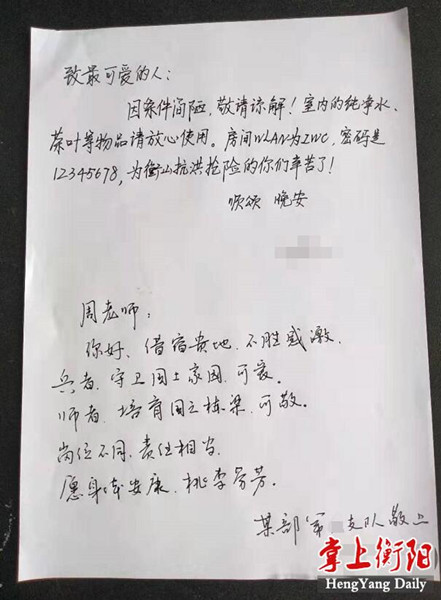 致最可爱的人：
因条件简陋，敬请谅解！室内的纯净水、
茶叶等物品请放心使用。房间WLAN为ZWC，密码是
12345678，为衡山抗洪抢险的你们辛苦了！
顺颂 晚安
周老师：
你好、借宿贵地、不胜感激、
兵者、守卫国土家园、可褒。
师者、培育国之栋梁、可敬。
岗位不同、责任相当、
愿身体安康、桃李芬芳。
某部 支队敬上
掌上衡阳
HengYang Daily